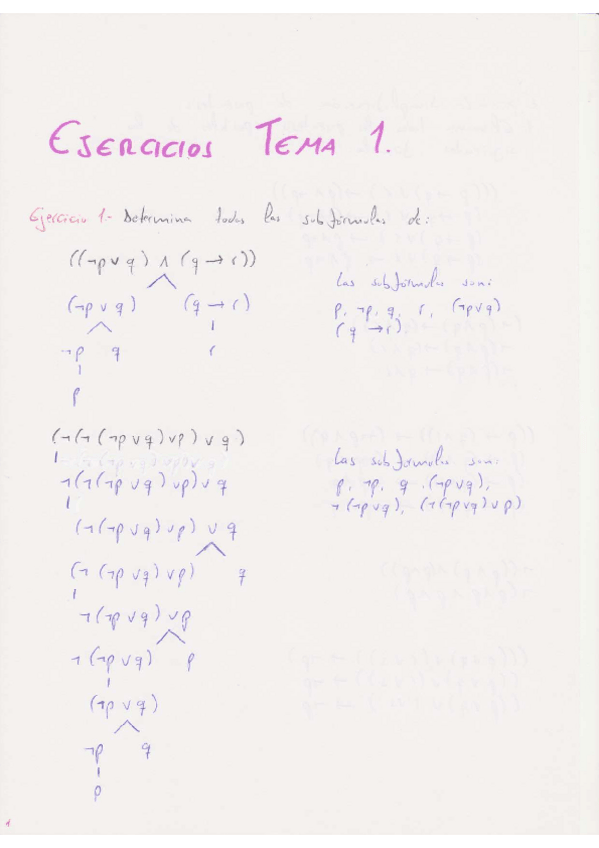 EJERCICIOS TEMA 1.
Ejercicio 1.- Determina todas las subfórmulas de:
((¬p ∨ q) ∧ (q → r))
(¬p ∨ q) (q → r)
¬p q r
p
Las subfórmulas son:
p, ¬p, q, r, (¬p∨q)
(q → r)
(¬(¬(¬p ∨ q) ∨ p) ∨ q)
¬(¬(¬p ∨ q) ∨ p) ∨ q
(¬(¬p ∨ q) ∨ p) ∨ q
(¬(¬p ∨ q) ∨ p) q
¬(¬p ∨ q) ∨ p
¬(¬p ∨ q) p
(¬p ∨ q)
¬p q
p
Las subfórmulas son:
p, ¬p, q, (¬p∨q),
¬(¬p∨q), (¬(¬p∨q)∨p)
1